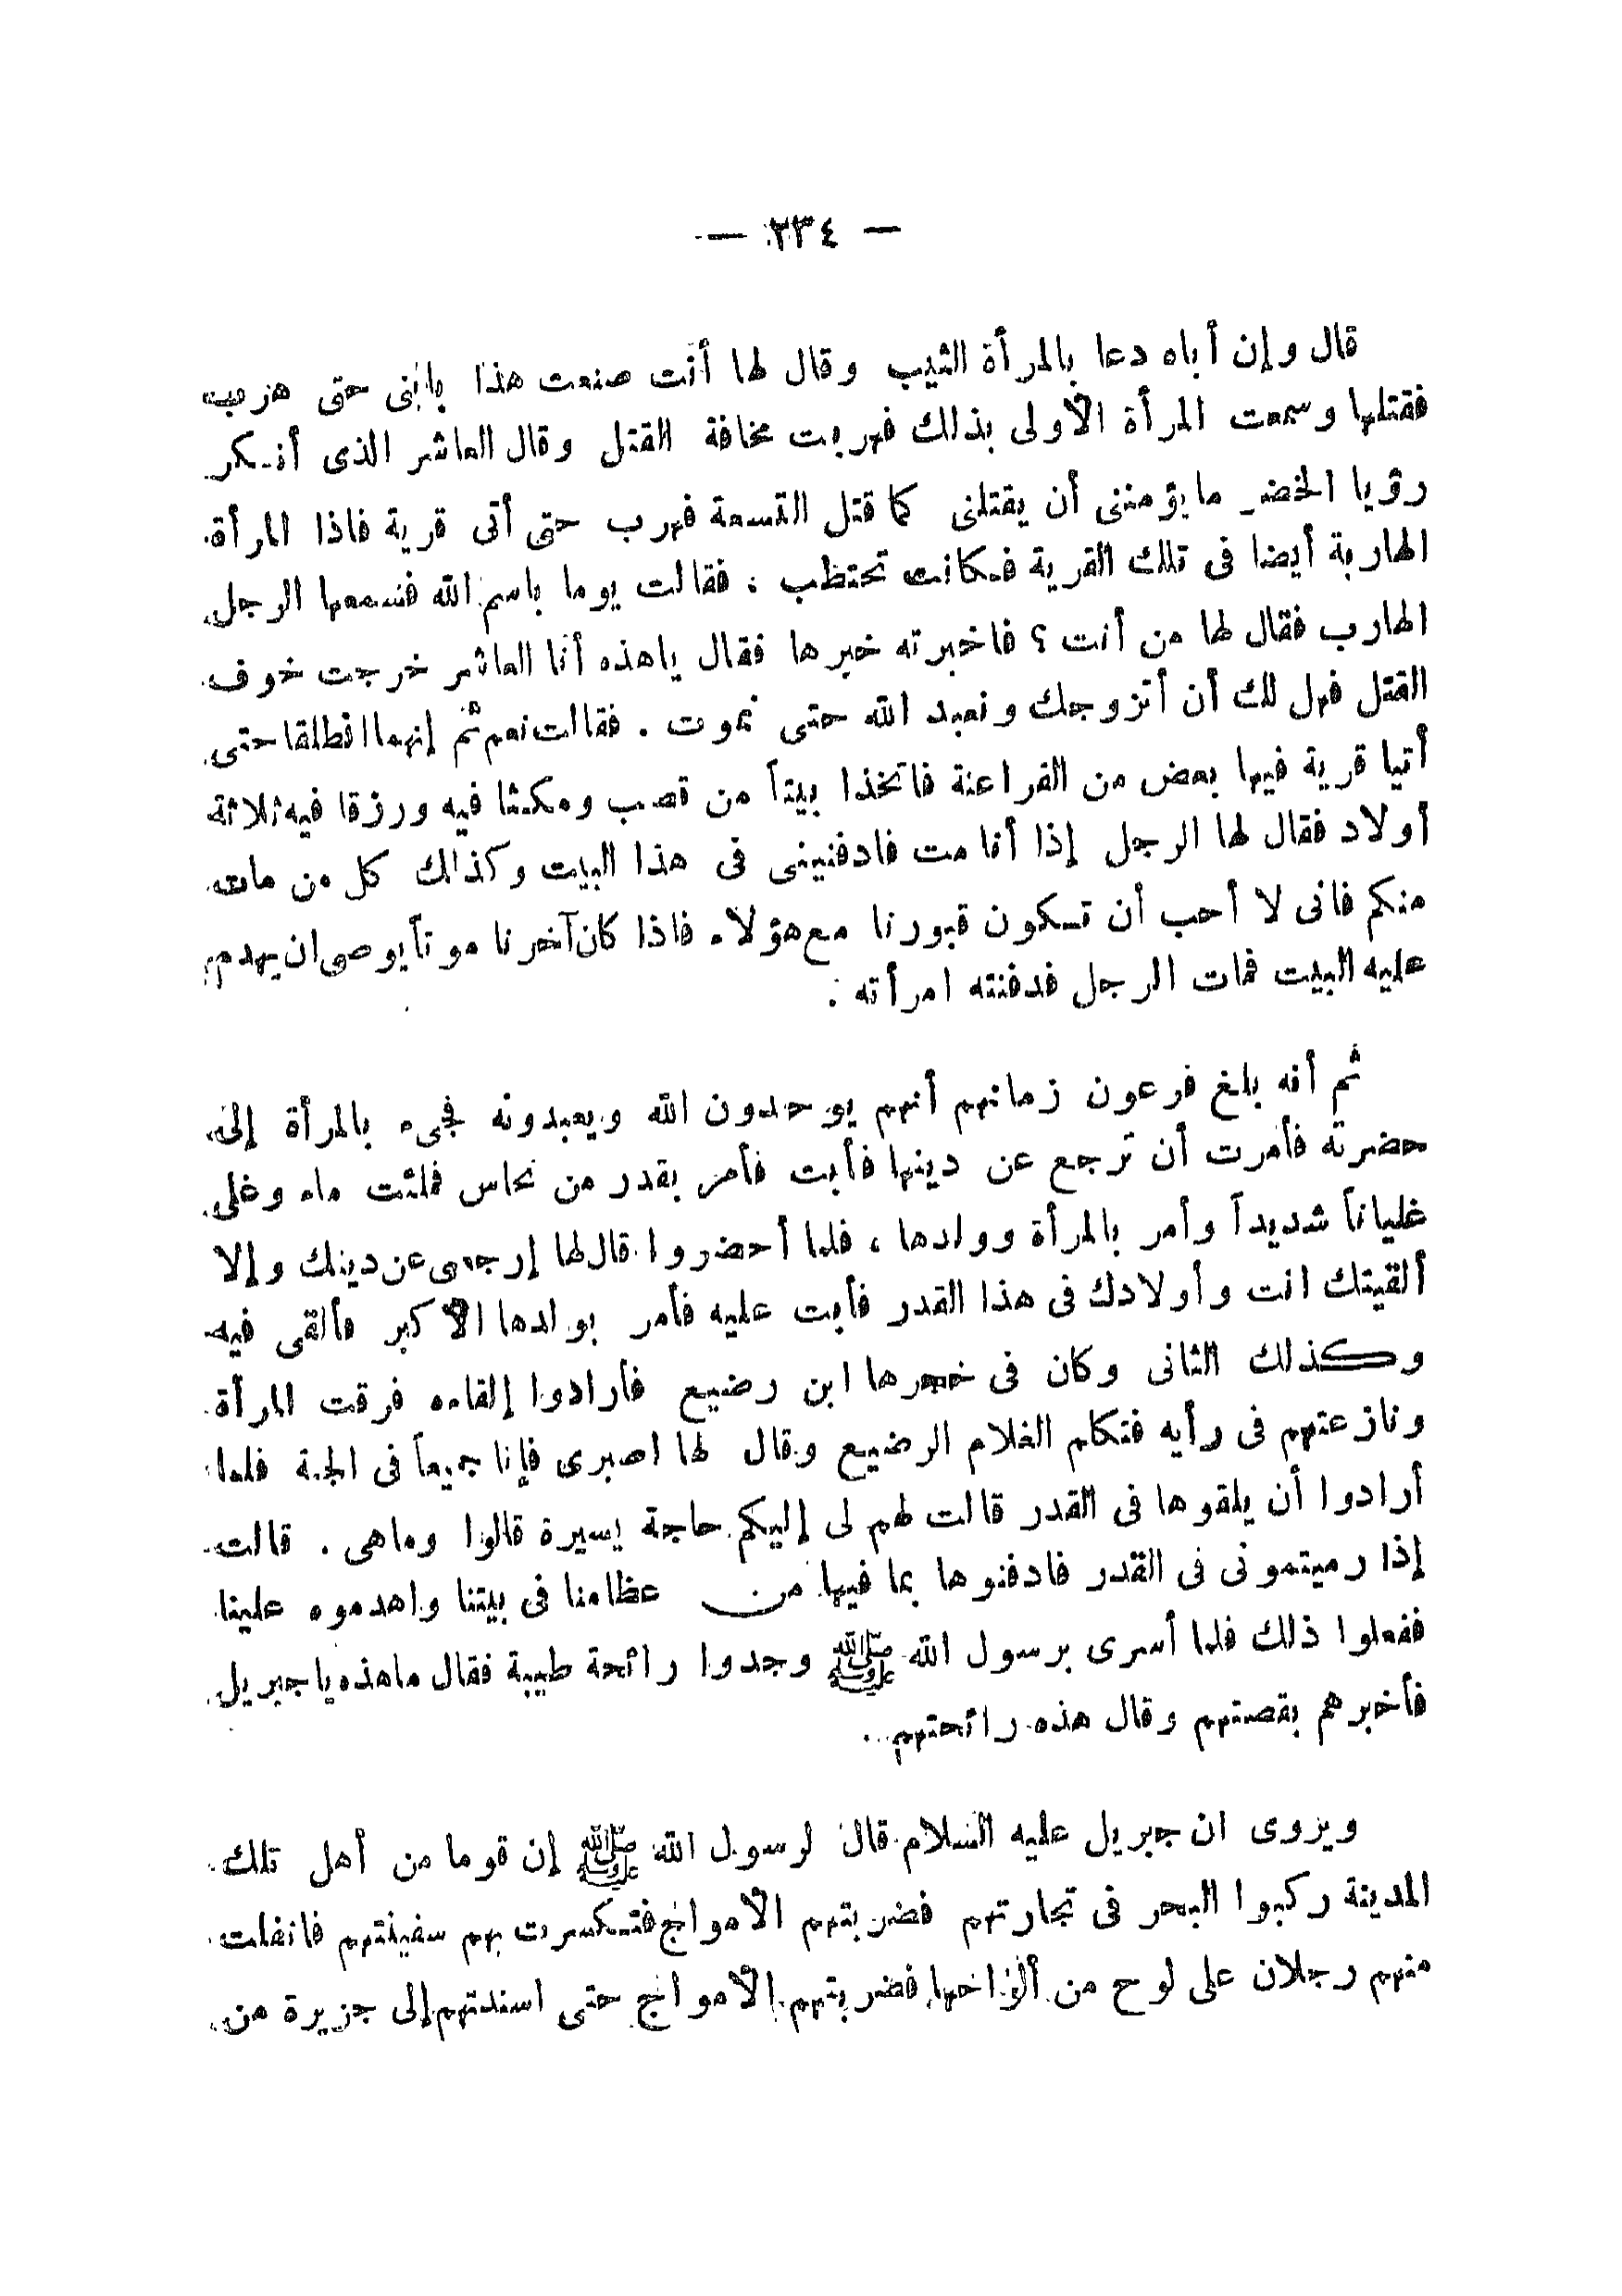 — ٢٣٤ —
قال وإن أباه دعا بالمرأة الثيب وقال لها أنت صنعت هذا بابنى حتى هرب
فقتلها وسمعت المرأة الأولى بذلك فهربت مخافة القتل وقال العاشر الذى أنكر
رؤيا الخضر مايؤمننى أن يقتلنى كما قتل التسعة فهرب حتى أتى قرية فاذا المرأة
الهاربة أيضا فى تلك القرية فكانت تحتظب ، فقالت يوما باسم الله فسمعها الرجل
الهارب فقال لها من أنت ؟ فاخبرته خبرها فقال ياهذه أنا العاشر خرجت خوف
القتل فهل لك أن أتزوجك ونعبد الله حتى نموت . فقالت نعم ثم إنهما انطلقا حتى
أتيا قرية فيها بعض من الفراعنة فاتخذا بيتاً من قصب ومكثا فيه ورزقا فيه ثلاثة
أولاد فقال لها الرجل إذا أنا مت فادفنينى فى هذا البيت وكذلك كل من مات
منكم فانى لا أحب أن تكون قبورنا مع هؤلاء فاذا كان آخرنا موتاً يوصى ان يهدم
عليه البيت فمات الرجل فدفنته امرأته .
ثم أنه بلغ فرعون زمانهم أنهم يوحدون الله ويعبدونه فجىء بالمرأة إلى
حضرته فأمرت أن ترجع عن دينها فأبت فأمر بقدر من نحاس فملئت ماء وغلى
غلياناً شديداً وأمر بالمرأة وولدها ، فلما أحضروا قال لها إرجعى عن دينك وإلا
ألقيتك انت وأولادك فى هذا القدر فأبت عليه فأمر بولدها الأكبر فألقى فيه
وكذلك الثانى وكان فى حجرها ابن رضيع فأرادوا إلقاءه فرقت المرأة
ونازعتهم فى رأيه فتكلم الغلام الرضيع وقال لها اصبرى فإنا جميعاً فى الجنة فلما
أرادوا أن يلقوها فى القدر قالت لهم لى إليكم حاجة يسيرة قالوا وماهى . قالت
إذا رميتمونى فى القدر فادفنوها بما فيها من عظامنا فى بيتنا واهدموه علينا
ففعلوا ذلك فلما أسرى برسول الله ﷺ وجدوا رائحة طيبة فقال ماهذه يا جبريل
فأخبرهم بقصتهم وقال هذه رائحتهم .
ويروى ان جبريل عليه السلام قال لرسول الله ﷺ إن قوما من أهل تلك
المدينة ركبوا البحر فى تجارتهم فضربتهم الأمواج فتكسرت بهم سفينتهم فانفلت
منهم رجلان على لوح من ألواحها فضربتهم الأمواج حتى اسندتهم إلى جزيرة من